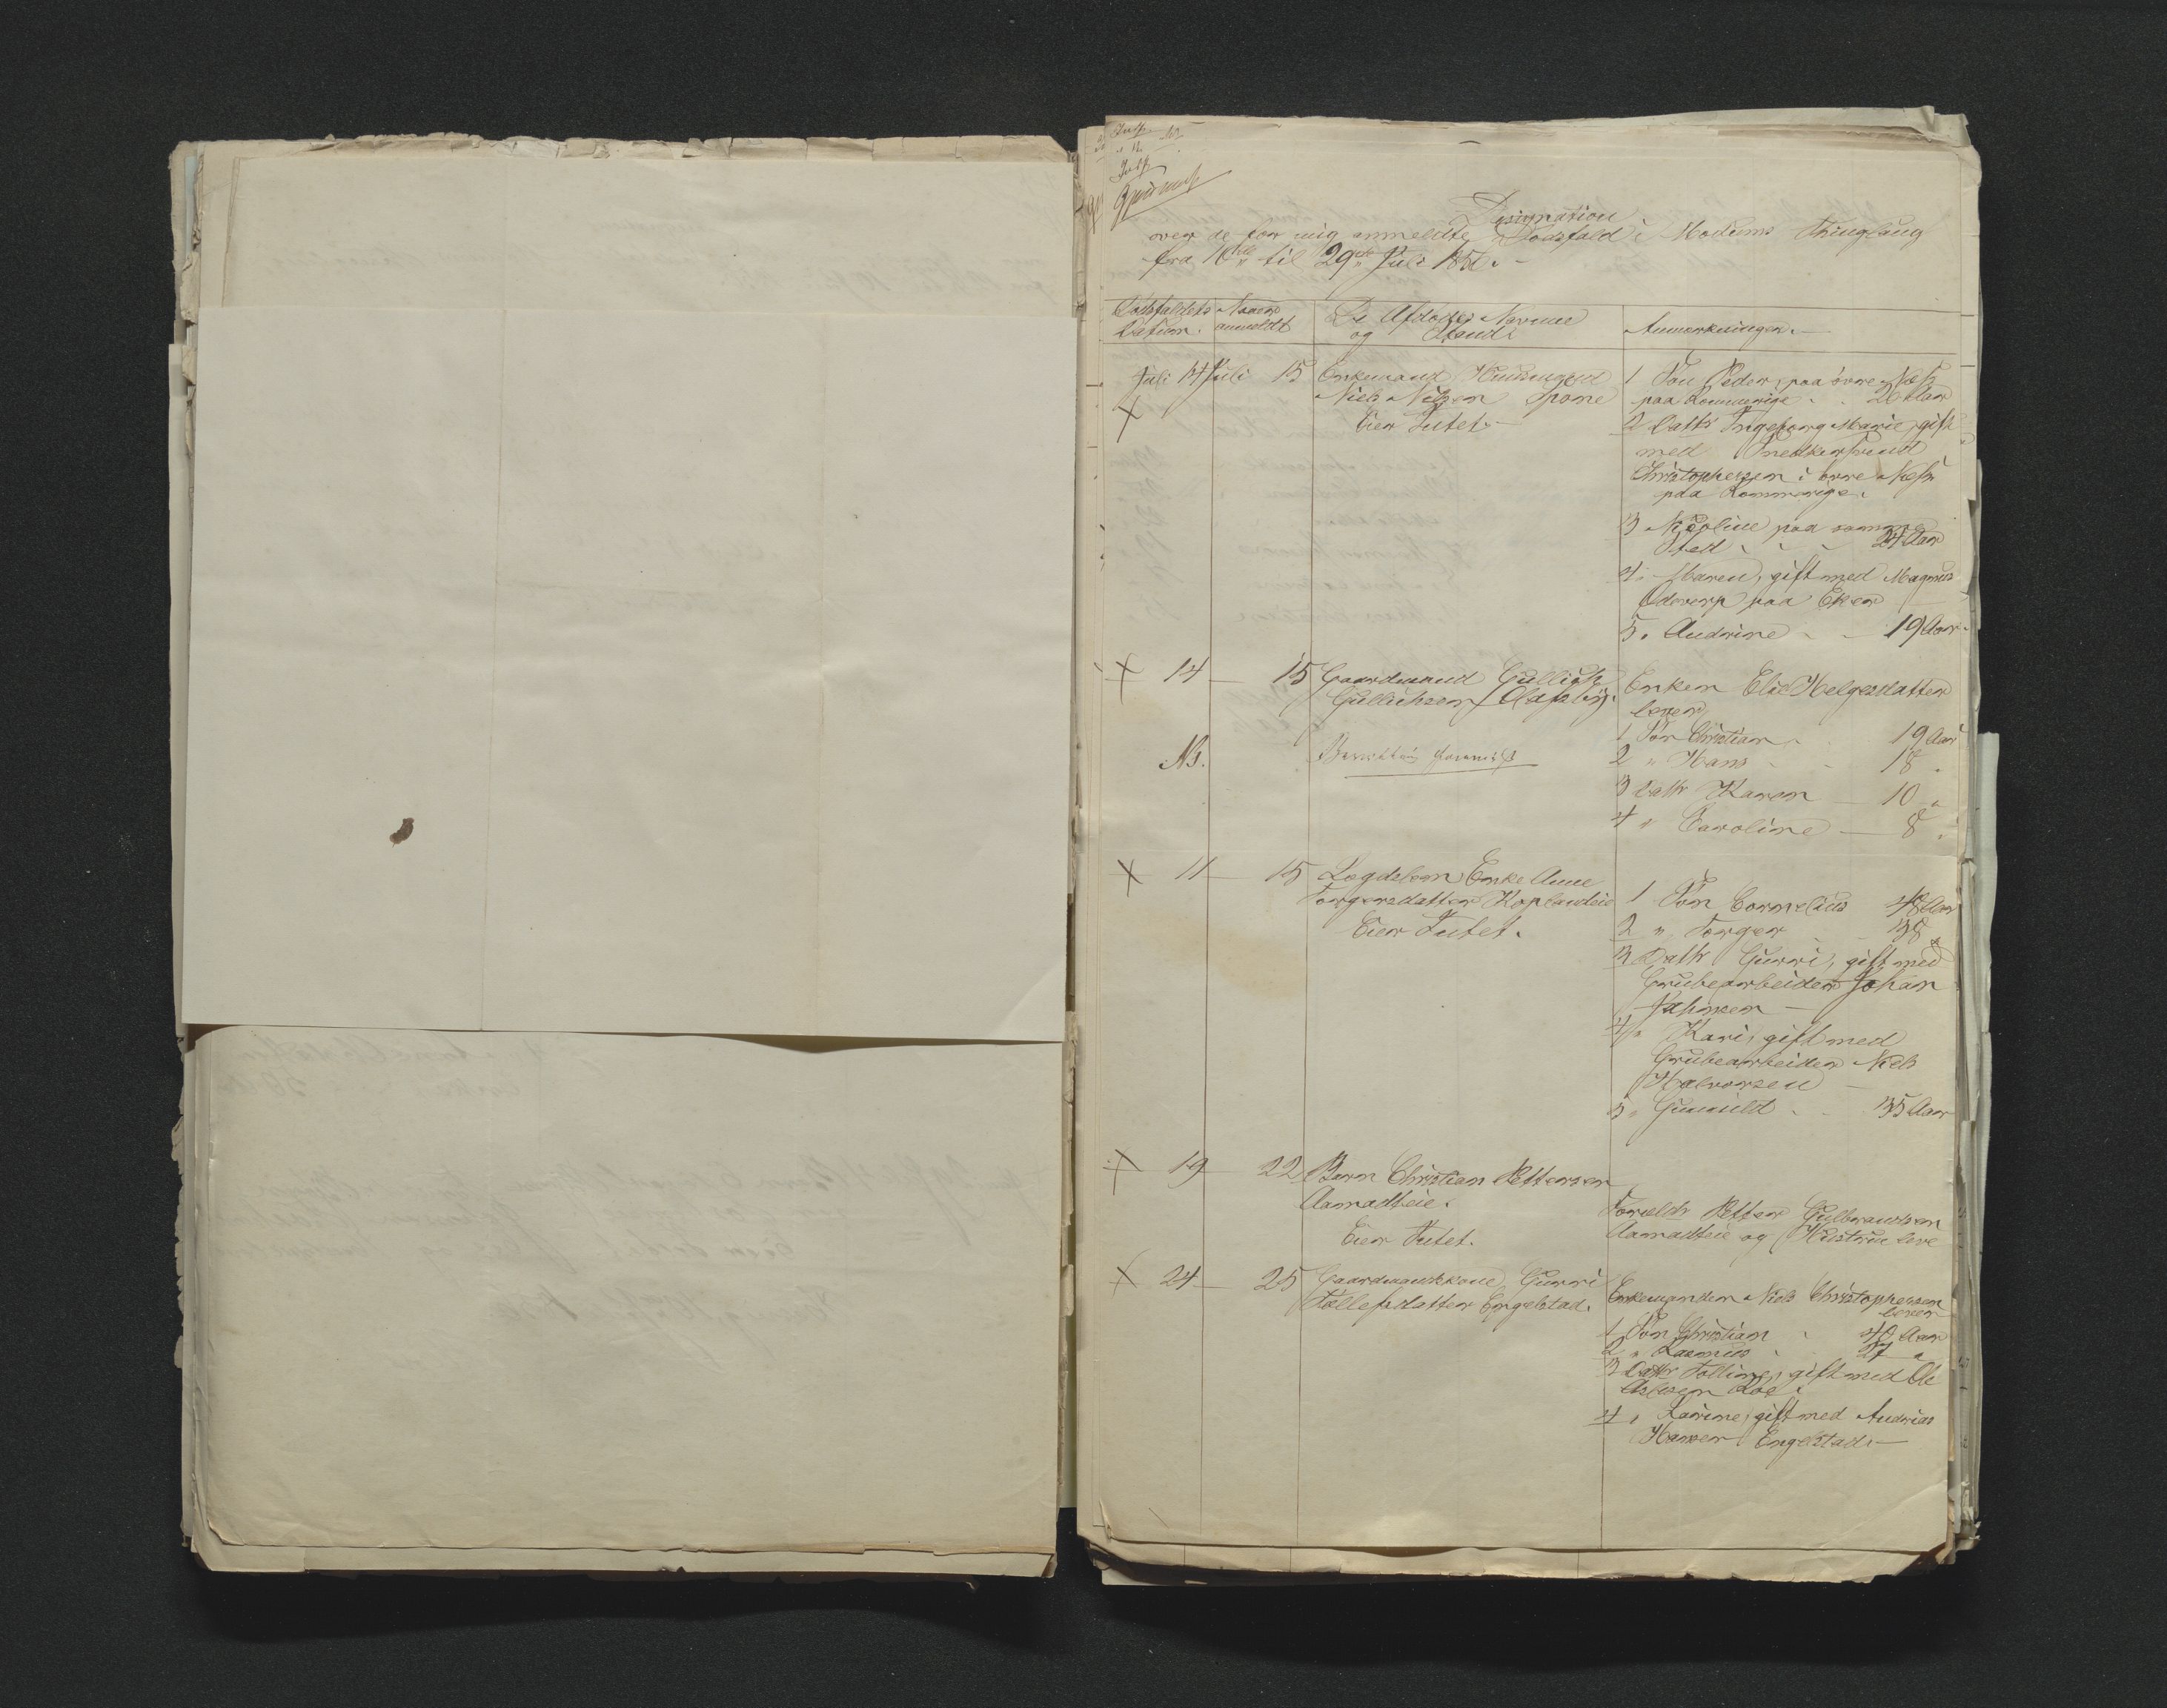 Designation
over de for mig anmeldte Dødsfald i Modums Thinglaug
fra 10de til 29de Juli 185
Dødsfaldets Datum.
Naar anmeldt
De Afdødes Navne og Stand
Anmærkninger.
Juli 14 Juli 15 Enkemand Huusmand
Niels Nilsen Spone
Eier Intet.
1 Søn Peder, paa øvre Næss
paa Kommerige 26 Aar
2 Dattr Ingeborg Marie, gift
med Snedkersvend
Christophersen i øvre Næss
paa Kommerige.
3 Nicoline paa samme
Sted 24 Aar
4. Maren, gift med Magnus
paa Eker
5. Andrine 19 Aar
14 15 Gaardmand Gullich
Gullichsen
Enken Elie Helgesdatter
lever
NB.
1 Søn Christian 19 Aar
2 " Hans 18 "
3 Dattr Karen 10 "
4 " Caroline 8 "
11 15 Lægdslem Enke Anne
Torgersdatter Koplandeie
Eier Intet.
1 Søn Cornelius 48 Aar
2 " Torger 38 "
3 Dattr Gurri, gift med
Grubearbeider Johan
Johnsen
4 " Kari, gift med
Grubearbeider Niels
Halvorsen
5 " Gunnild 35 Aar
19 22 Barn Christian Pettersen
Aamodteie.
Eier Intet.
Foreldr Petter Gulbrandsen
Aamodteie og Hustrue leve
24 25 Gaardmandskone Gurri
Tollefsdatter Engelstad.
Enkemanden Niels Christophersen
lever
1 Søn Christian 40 Aar
2 " Rasmus 27 "
3 Dattr Tolline, gift med Ole
4 " Karine, gift med Andrias
Hansen Engelstad.